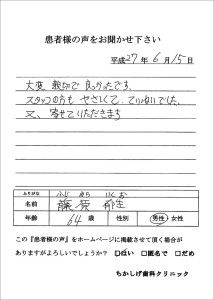 患者様の声をお聞かせ下さい
平成27年6月15日
大変 親切で 良かったです。
スタッフの方も やさしくて、ていねいでした。
又、寄せていただきます
ふりがな
名前 藤原
年齢 64 歳 性別 男性・女性
この『患者様の声』をホームページに掲載させて頂く場合が
ありますがよろしいでしょうか? □はい □匿名で □だめ
ちかしげ歯科クリニック